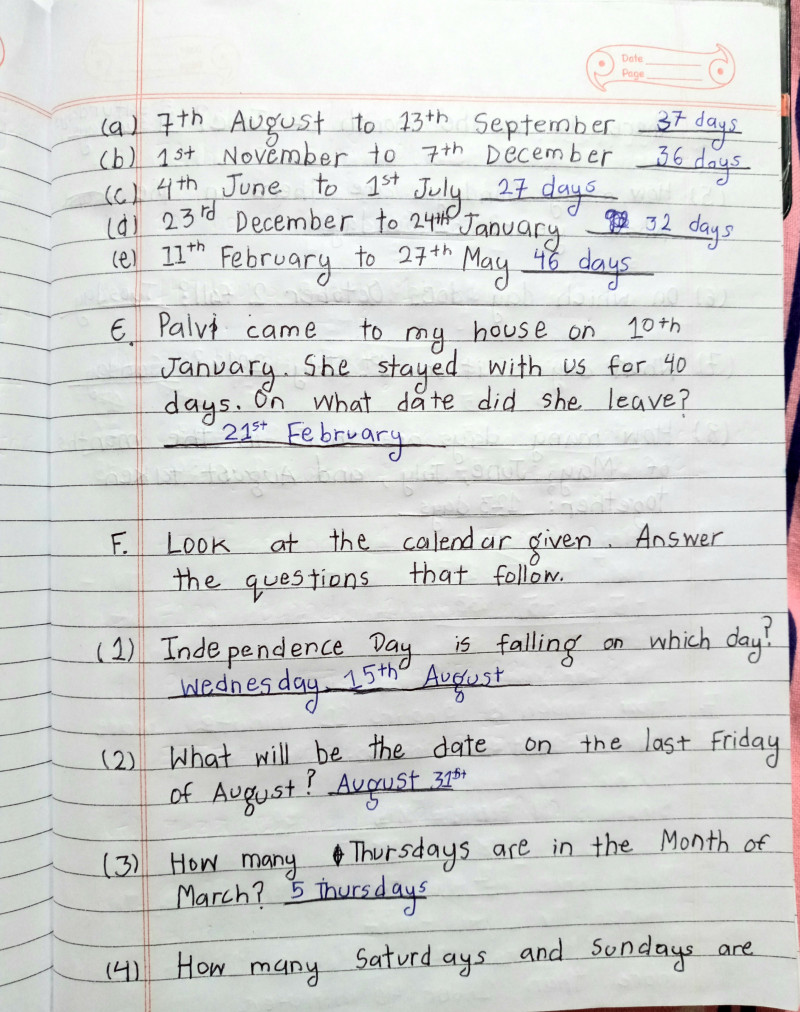 Date
Page
(a) 7th August to 13th September 37 days
(b) 1st November to 7th December 36 days
(c) 4th June to 1st July 27 days
(d) 23rd December to 24th January 32 days
(e) 11th February to 27th May 46 days
E. Palvi came to my house on 10th
January. She stayed with us for 40
days. On what date did she leave?
21st February
F. Look at the calendar given. Answer
the questions that follow.
(1) Independence Day is falling on which day?
Wednesday, 15th August
(2) What will be the date on the last Friday
of August? August 31st
(3) How many Thursdays are in the Month of
March? 5 Thursdays
(4) How many Saturdays and Sundays are